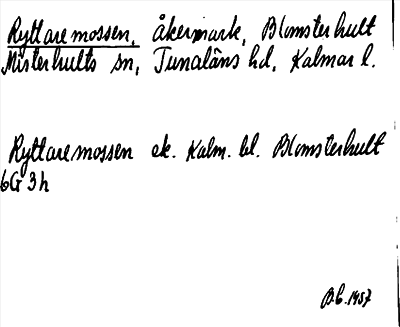 Ryttaremossen, åkermark, Blomsterhult
Misterhults sn, Tunaläns hd, Kalmar l.
Ryttaremossen ek. Kalm. bl. Blomsterhult
6G3h
B.C. 1957